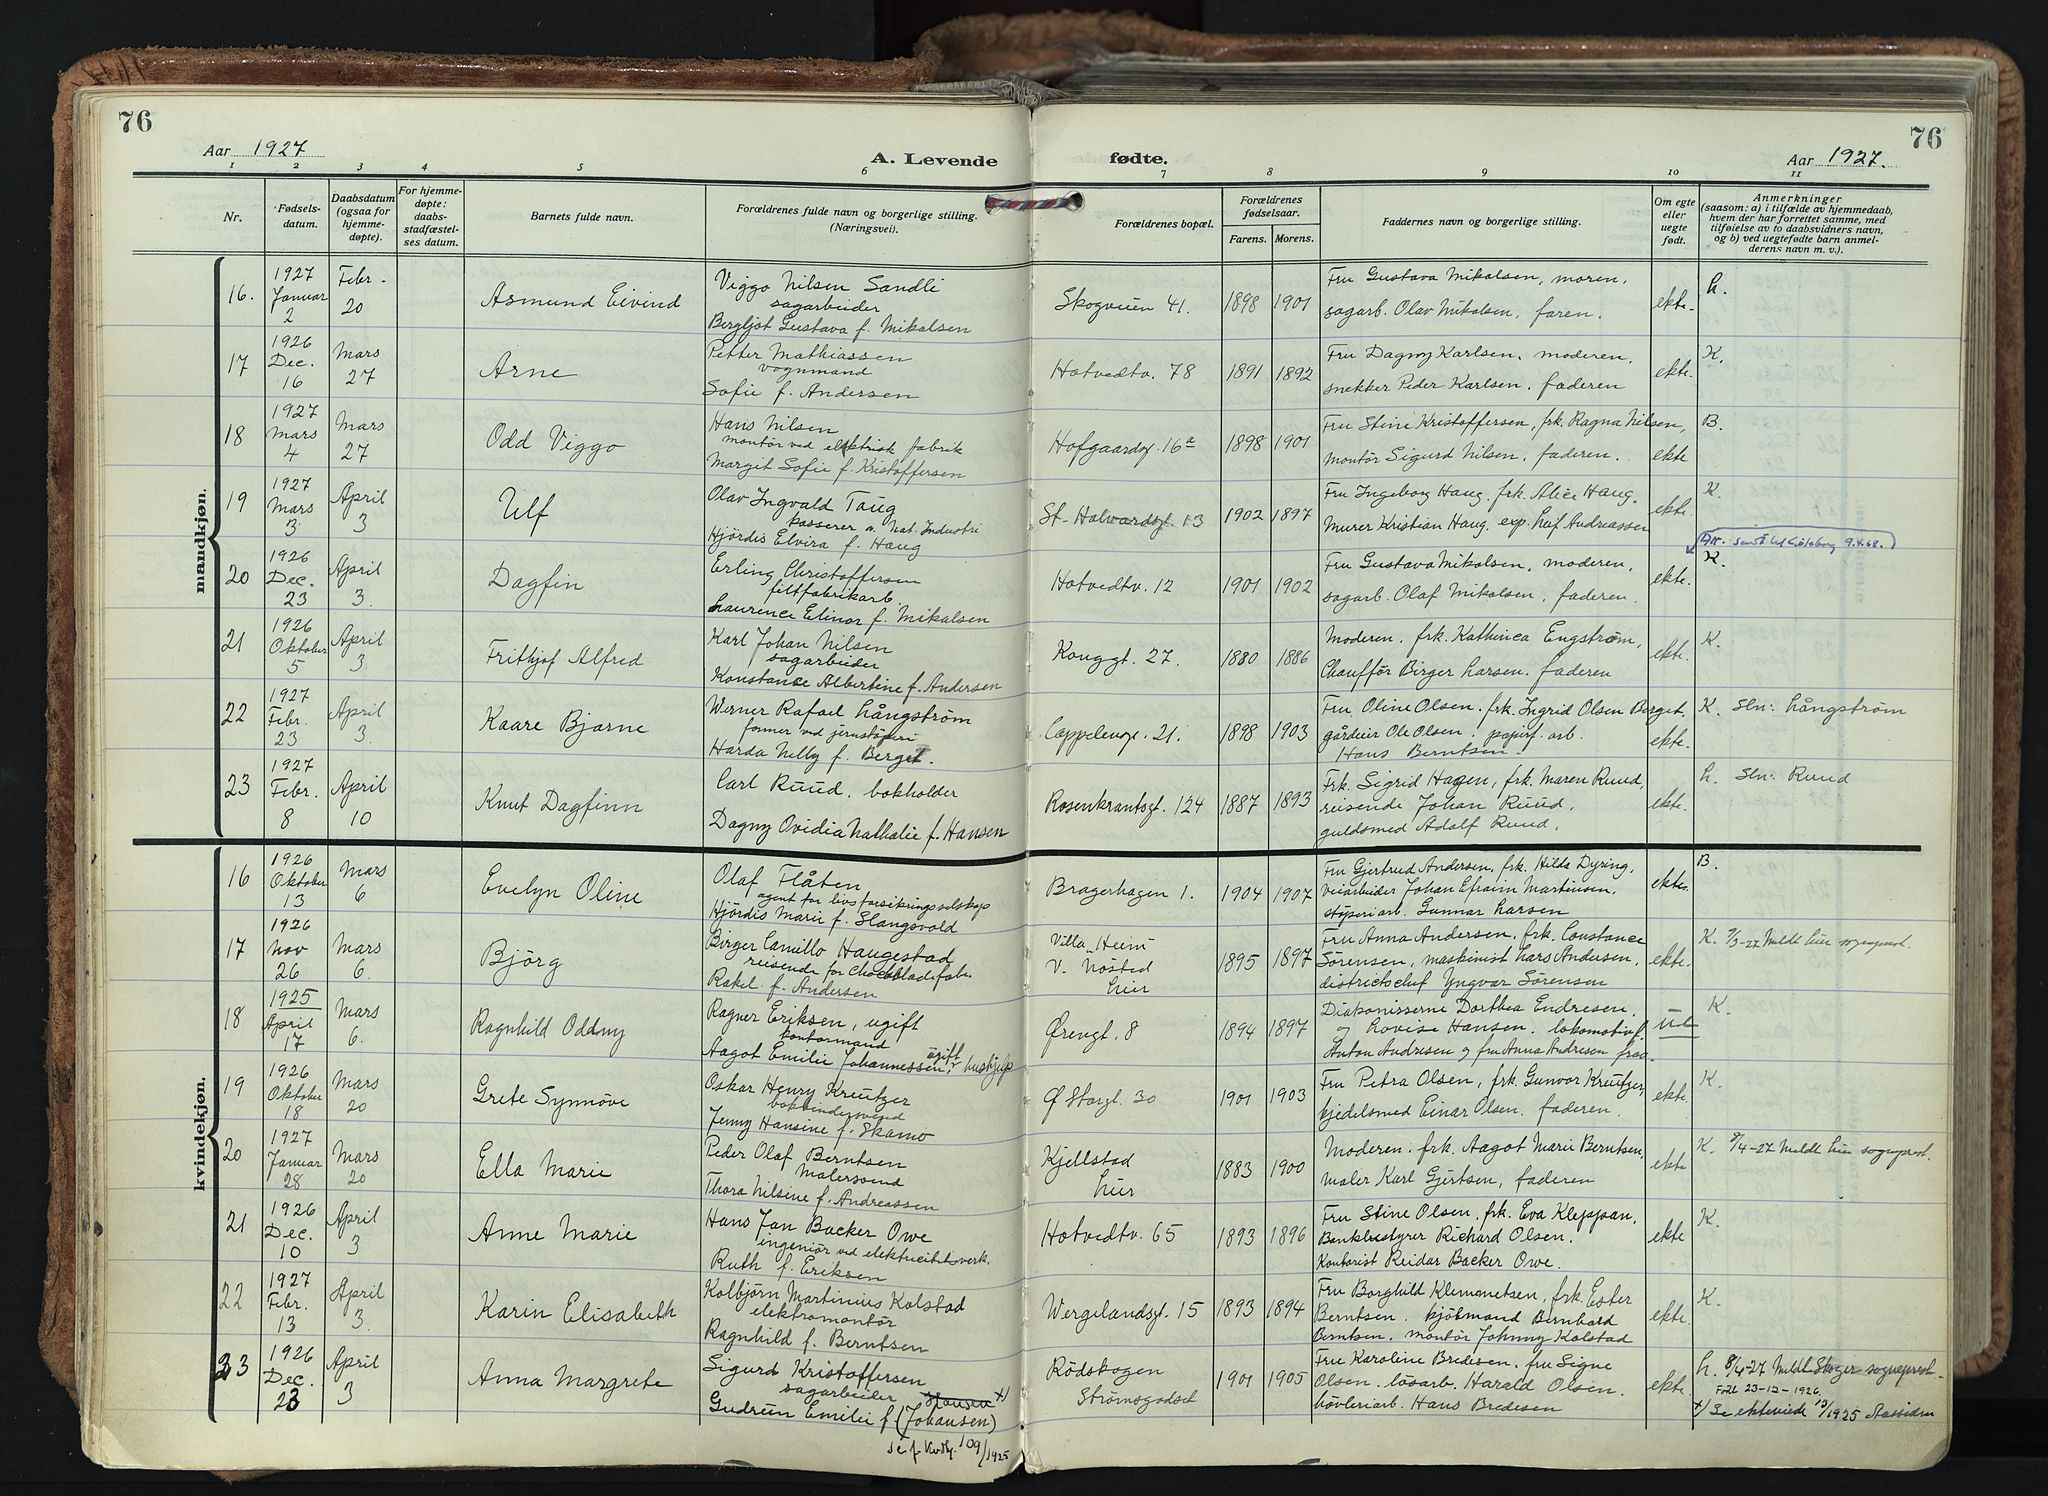 76
76
Aar 1927
A. Levende
fødte.
Aar 1927.
1 2 3 4 5 6 7 8 9 10 11
Nr.
Fødselsdatum.
Daabsdatum (ogsaa for hjemmedøpte).
For hjemmedøpte: daabsstadfæstelses datum.
Barnets fulde navn.
Forældrenes fulde navn og borgerlige stilling. (Næringsvei).
Forældrenes bopæl.
Forældrenes fødselsaar.
Farens. Morens.
Faddernes navn og borgerlige stilling.
Om egte eller uegte født.
Anmerkninger
(saasom: a) i tilfælde av hjemmedaab,
hvem der har forrettet samme, med
tilføielse av to daabsvidners navn,
og b) ved uegtefødte barn anmel-
derens navn m. v.).
mandkjøn.
16. 1927 Januar 2 Febr. 20 Asmund Eivind
Viggo Nilsen Sandli
sagarbeider
Bergljot Gustava f. Mikalsen
Skogveien 41. 1898 1901
Fru Gustava Mikalsen, moren,
sagarb. Olav Mikalsen, faren.
ekte. L.
17 1926 Dec. 16 Mars 27 Arne
Petter Mathiassen
vognmand
Sofie f. Andersen
Hotvedtv. 78 1891 1892
Fru Dagny Karlsen, moderen,
snekker Peder Karlsen, faderen
ekte. K.
18 1927 Mars 4 Mars 27 Odd Viggo
Hans Nilsen
montör ved elektrisk fabrik
Margit Sofie f. Kristoffersen
Hofgaardsg. 16a 1898 1901
Fru Stine Kristoffersen, frk. Ragna Nilsen,
montör Sigurd Nilsen, faderen.
ekte B.
19 1927 Mars 3 April 3 Ulf
Olav Ingvald Taug
kasserer v. Nat. Industri
Hjördis Elvira f. Haug
St-Halvardsgt. 13 1902 1897
Fru Ingeborg Haug, frk. Alice Haug.
Murer Kristian Haug, exp. Leif Andreassen
ekte. K.
9.4.68.
20 1926 Dec. 23 April 3. Dagfin
Erling Christoffersen
filtfabrikarb.
Laurence Elinor f. Mikalsen
Hotvedtv. 12 1901 1902
Fru Gustava Mikalsen, moderen,
sagarb. Olaf Mikalsen, faderen.
ekte. K.
21 1926 Oktober 5 April 3 Frithjof Alfred
Karl Johan Nilsen
sagarbeider
Konstance Albertine f. Andersen
Konggt. 27. 1880 1886
Moderen, frk. Kathinca Engström,
Chaufför Birger Larsen, faderen
ekte. K.
22 1927 Febr. 23 April 3. Kaare Bjarne
Werner Rafael Långström
former ved jernstöperi
Harda Nelly f. Berget.
Cappelensg. 21. 1898 1903
Fru Oline Olsen, frk. Ingrid Olsen Berget,
gårdeier Ole Olsen, papirf. arb.
Hans Berntsen.
ekte. K. Sln: Långström
23 1927 Febr. 8 April 10 Knut Dagfinn
Carl Ruud, bokholder
Dagny Ovidia Nathalie f. Hansen
Rosenkrantsgt. 124 1887 1893
Frk. Sigrid Hagen, frk. Maren Ruud,
reisende Johan Ruud,
guldsmed Adolf Ruud.
ekte. L. Sln: Ruud
kvindekjøn.
16 1926 Oktober 13 Mars 6 Evelyn Oline
Olaf Flåten
agent for livsforsikringsselskap
Hjördis Marie f. Slangsvold
Bragerhagen 1. 1904 1907
Fru Gjertrud Andersen, frk. Hilda Dyring,
veiarbeider Johan Efraim Martinsen,
stöperiarb. Gunnar Larsen
ekte. B.
17 1926 Nov 26 Mars 6. Björg
Birger Camillo Haugestad
reisende for chokoladefabr.
Rakel f. Andersen
Villa Heim
v. Nösted
Lier
1895 1897
Fru Anna Andersen, frk. Constance
Sörensen, maskinist Lars Andersen,
districtschef Yngvar Sörensen
ekte. K. 9/3-27 Meldt Lier sogneprest.
18 1925 April 17 Mars 6. Ragnhild Oddny
Ragner Eriksen, ugift
kontormand
Aagot Emilie Johannessen, ugift hushjelp
Ørengt. 8 1894 1897
Diakonisserne Dorthea Endresen,
og Lovise Hansen, lokomotivf.
Anton Andresen og fru Anna Andresen
K.
19 1926 Oktober 18 Mars 20 Grete Synnöve
Oskar Henry Kreutzer
bokbindersvend
Jenny Hansine f. Skamo
Ø Storgt. 30 1901 1903
Fru Petra Olsen, frk. Gunvor Kreutzer,
kjedelsmed Einar Olsen, faderen.
ekte. K.
20 1927 Januar 28 Mars 20 Ella Marie
Peder Olaf Berntsen
Malersvend
Thora Nilsine f. Andreassen
Kjellstad
Lier
1883 1900
Moderen, frk. Aagot Marie Berntsen,
maler Karl Gjertsen, faderen
ekte K. 9/4-27 Meldt Lier sogneprest.
21 1926 Dec. 10 April 3 Anne Marie
Hans Jan Backer Owe
ingeniör ved elektricitetsverk.
Ruth f. Eriksen
Hotvedtv. 65 1893 1896
Fru Stine Olsen, frk. Eva Kleppan,
Bankbestyrer Richard Olsen.
Kontorist Reidar Backer Owe.
ekte K.
22 1927 Febr. 13 April 3. Karin Elisabeth
Kolbjörn Martinius Kolstad
elektromontör
Ragnhild f. Berntsen
Wergelandsgt. 15 1893 1894
Fru Borghild Klemmetsen, frk. Ester
Berntsen, kjötmand Bernhard
Berntsen, montör Johnny Kolstad
ekte. K.
23 1926 Dec. 23 April 3 Anna Margrete
Sigurd Kristoffersen
sagarbeider Hansen x)
Gudrun Emilie f. (Johansen)
se f. 109/1925
Rödskogen
Strömsgodset
1901 1905
Fru Karoline Bredesen, fru Signe
Olsen, lösarb. Harald Olsen,
hövleriarb. Hans Bredesen
ekte. L. 8/4-27 Meldt Skoger sogneprest.
Född 23-12-1926.
x) Se ekteviede 13/1925